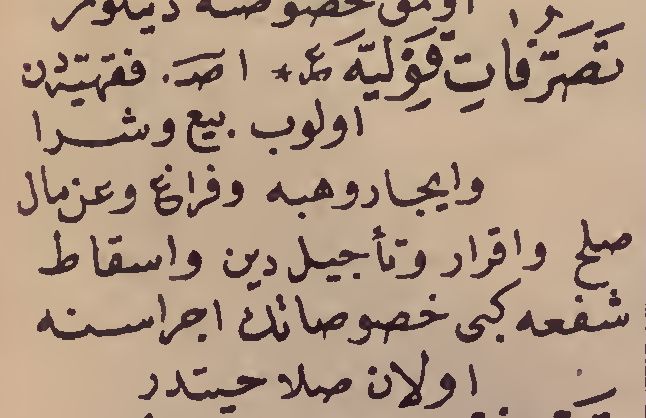 اولمق خصوصنه دینلور
تَصَرُّفَاتِ قَوْلِيَّه ع * ا ص. فقهیه‌دن
اولوب بیع و شرا
وایجار وهبه وفراغ وعن مال
صلح واقرار وتأجیل دین واسقاط
شفعه کبی خصوصاتك اجراسنه
اولان صلاحیتدر